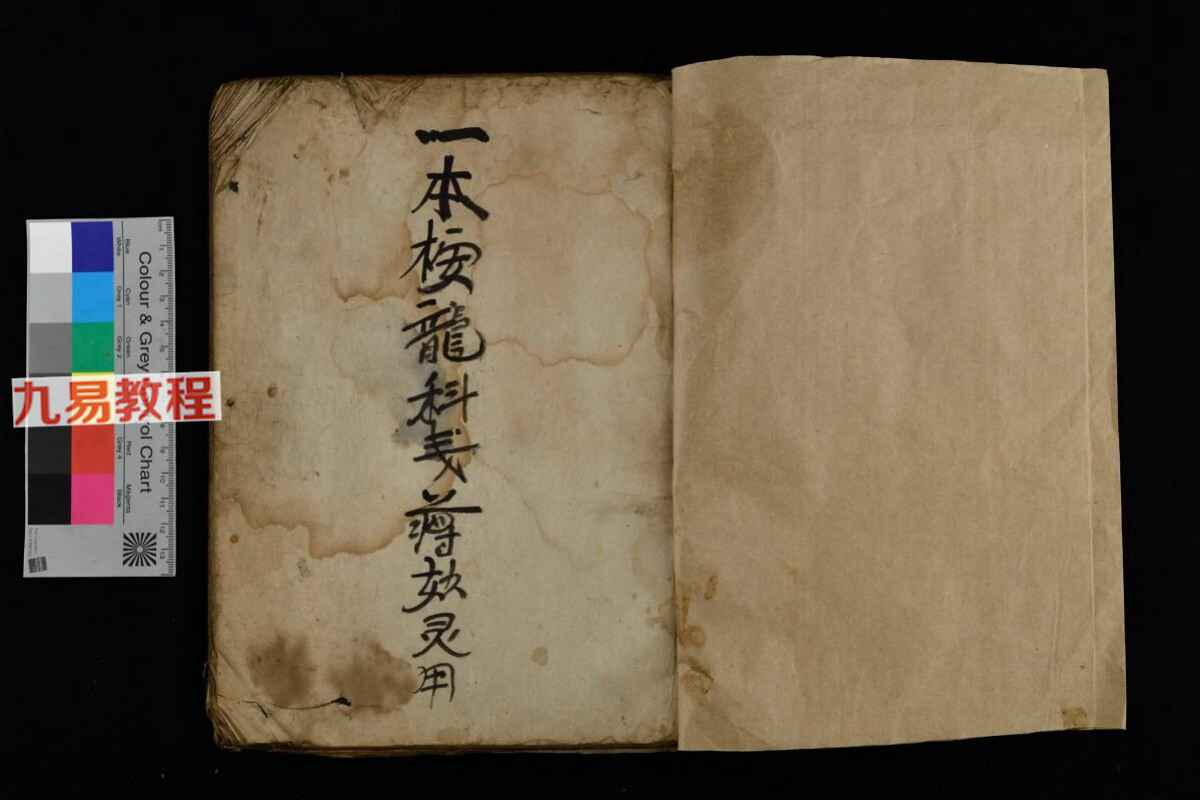 一本桉龍科戋妙灵用
九易教程
Colour & Grey
rol Chart
Blue
Cyan
Green
Red
Magenta
White
Grey 1
Grey 2
Grey 4
Black